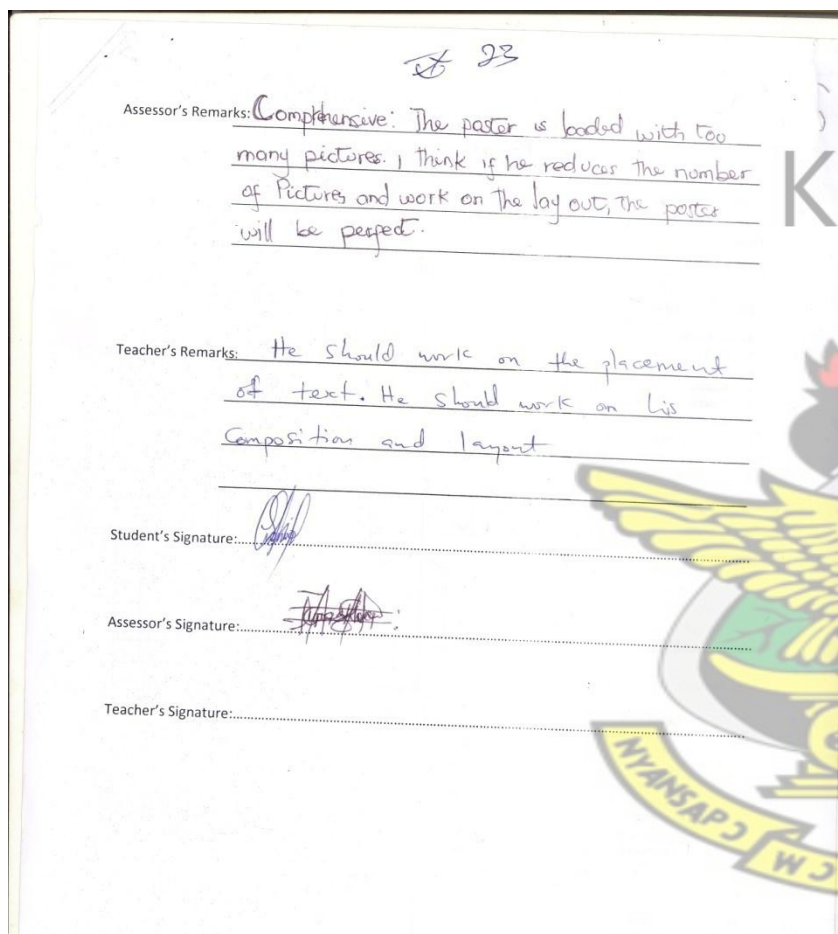 23
Assessor's Remarks: Comprehensive: The poster is loaded with too
many pictures. I think if he reduces the number
of Pictures and work on the lay out, the poster
will be perfect.
K
Teacher's Remarks: He should work on the placement
of text. He should work on his
Composition and layout
Student's Signature:
Assessor's Signature:
Teacher's Signature:
NYANSAPƆ
W Ɔ